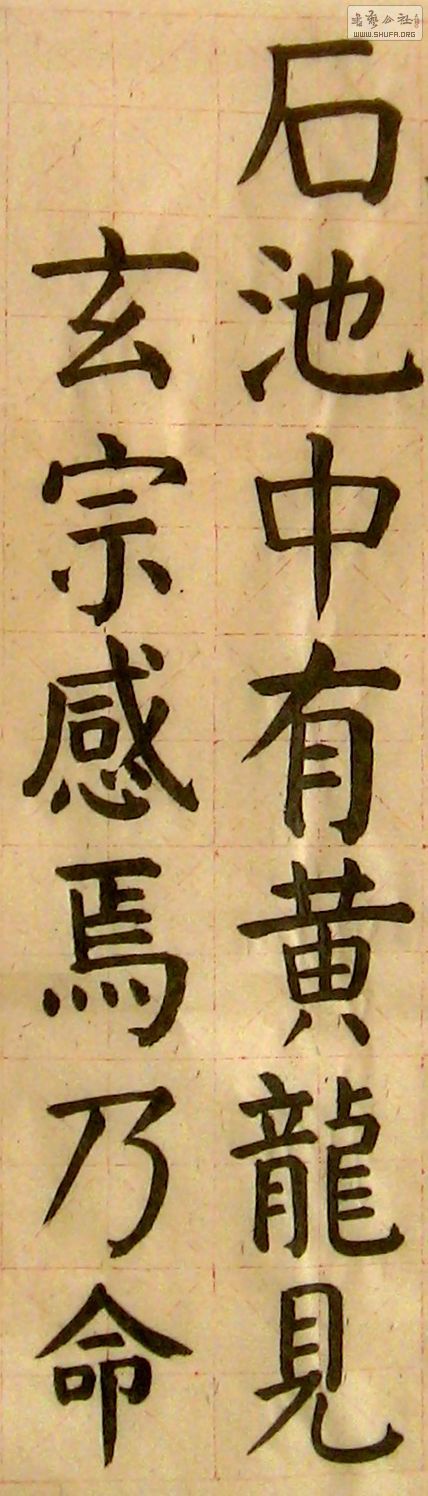 石池中有黄龍見
玄宗感焉乃命
书艺公社
WWW.SHUFA.ORG